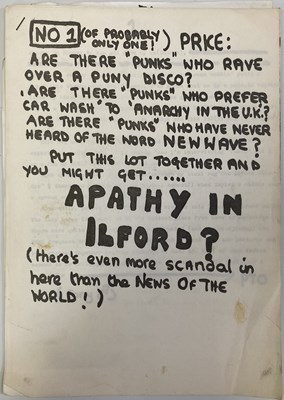 NO 1 (OF PROBABLY ONLY ONE!) PRICE:
ARE THERE "PUNKS" WHO RAVE
OVER A PUNY DISCO?
ARE THERE "PUNKS" WHO PREFER
CAR WASH" TO 'ANARCHY IN THE U.K.?
ARE THERE "PUNKS" WHO HAVE NEVER
HEARD OF THE WORD NEW WAVE?
PUT THIS LOT TOGETHER AND
YOU MIGHT GET......
APATHY IN
ILFORD?
(there's even more scandal in
here than the NEWS OF THE
WORLD!)